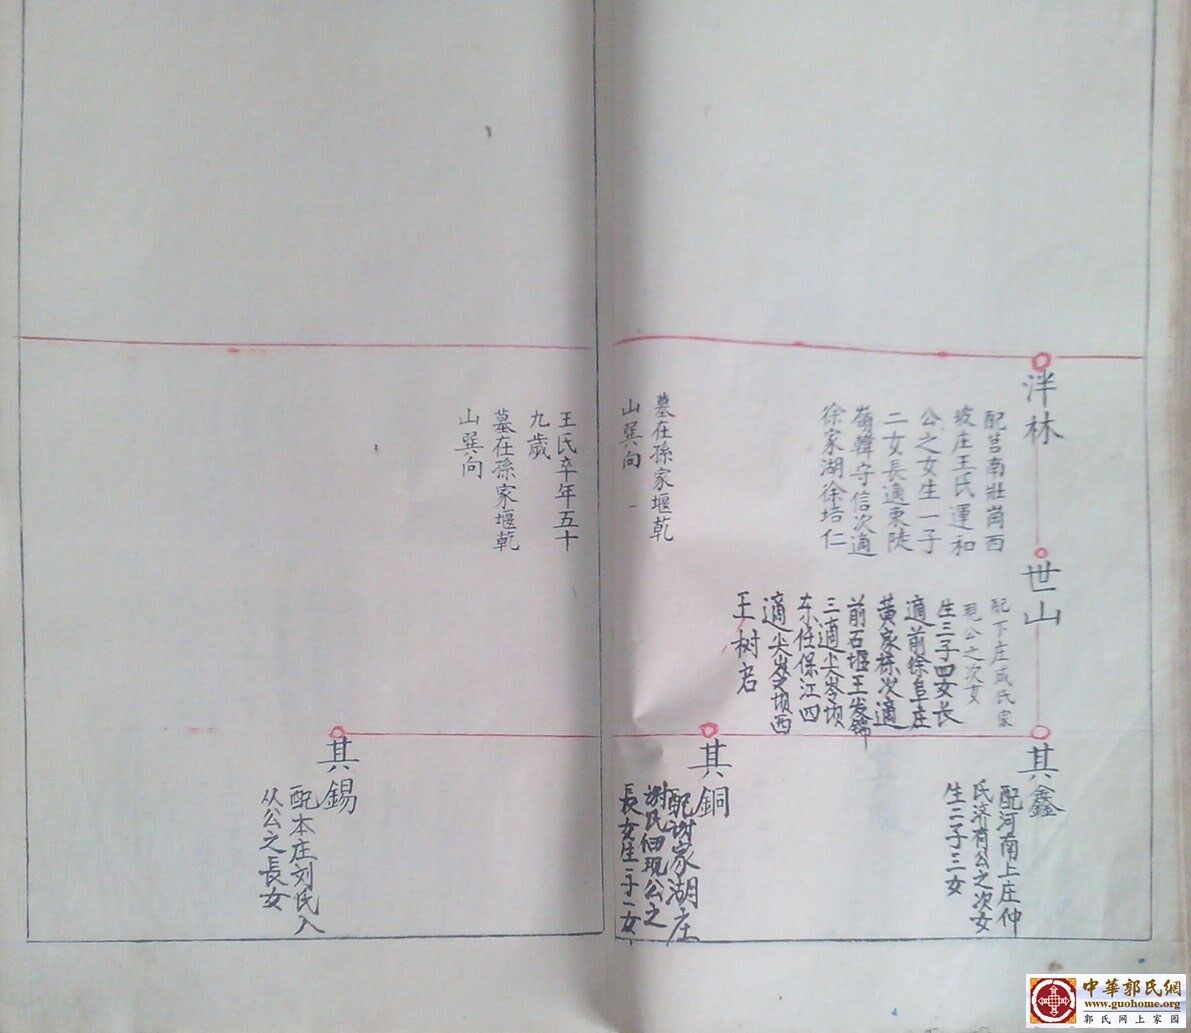 泮林
配莒南壯崗西
坡庄王氏運和
公之女生一子
二女長適東陡
嶺韓守信次適
徐家湖徐培仁
墓在孫家堰乾
山巽向
王氏卒年五十
九歲
墓在孫家堰乾
山巽向
世山
配下庄成氏家
現公之次女
生三子四女長
適前徐阜庄
黄家棟次適
前石堰王发錦
三適尖岑坝
东任保江四
適尖岑坝西
王树岩
其鑫
配河南上庄仲
氏济有公之次女
生二子三女
其銅
配谢家湖庄
謝氏佃现公之
長女生一子一女
其錫
配本庄刘氏入
从公之長女
中華郭氏網
www.guohome.org
郭氏网上家园